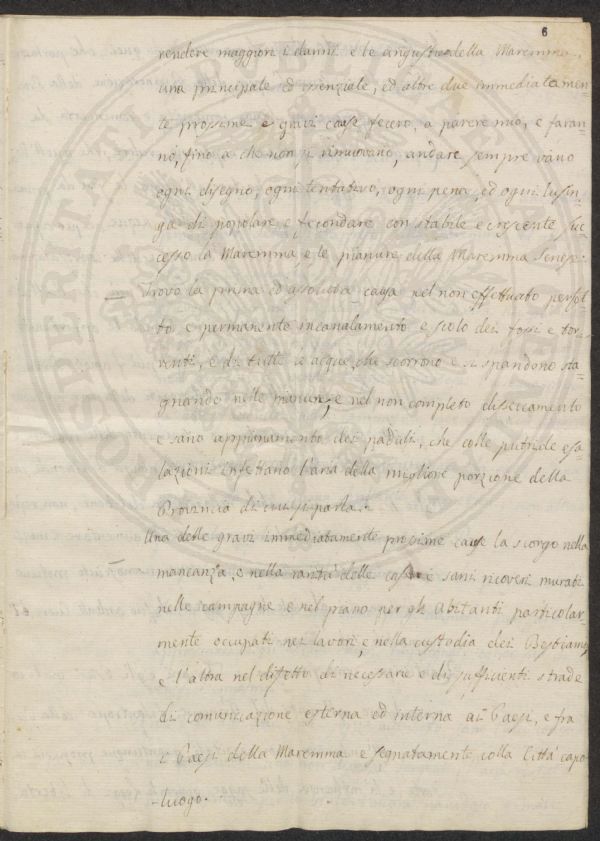 6
rendere maggiori i danni e le angustie della Maremma,
una principale ed essenziale, ed altre due immediatamen-
te prossime e gravi cause fecero, a parere mio, e faran-
no, fino a che non si rimuovano, andare sempre vano
ogni disegno, ogni tentativo, ogni pena, ed ogni lusin-
ga di popolare, e fecondare con stabile e crescente suc-
cesso la Maremma e le pianure della Maremma Senese.
Trovo la prima ed assoluta causa nel non effettuato perfet-
to e permanente incanalamento e scolo dei fossi e tor-
renti, e di tutte le acque, che scorrono e si spandono sta-
gnando nelle pianure, e nel non completo diseccamento
e sano appianamento dei paduli, che colle putride esa-
lazioni infettano l'aria della migliore porzione della
Provincia di cui si parla.
Una delle gravi immediatamente prossime cause la scorgo nella
mancanza, e nella rarità delle case e sani ricoveri murati
nelle campagne e nel piano per gli Abitanti particolar-
mente occupati nei lavori, e nella custodia dei Bestiami,
e l'altra nel difetto di necessarie e di sufficienti strade
di comunicazione esterna ed interna ai Paesi, e fra
i Paesi della Maremma e segnatamente colla Città capo
-luogo.